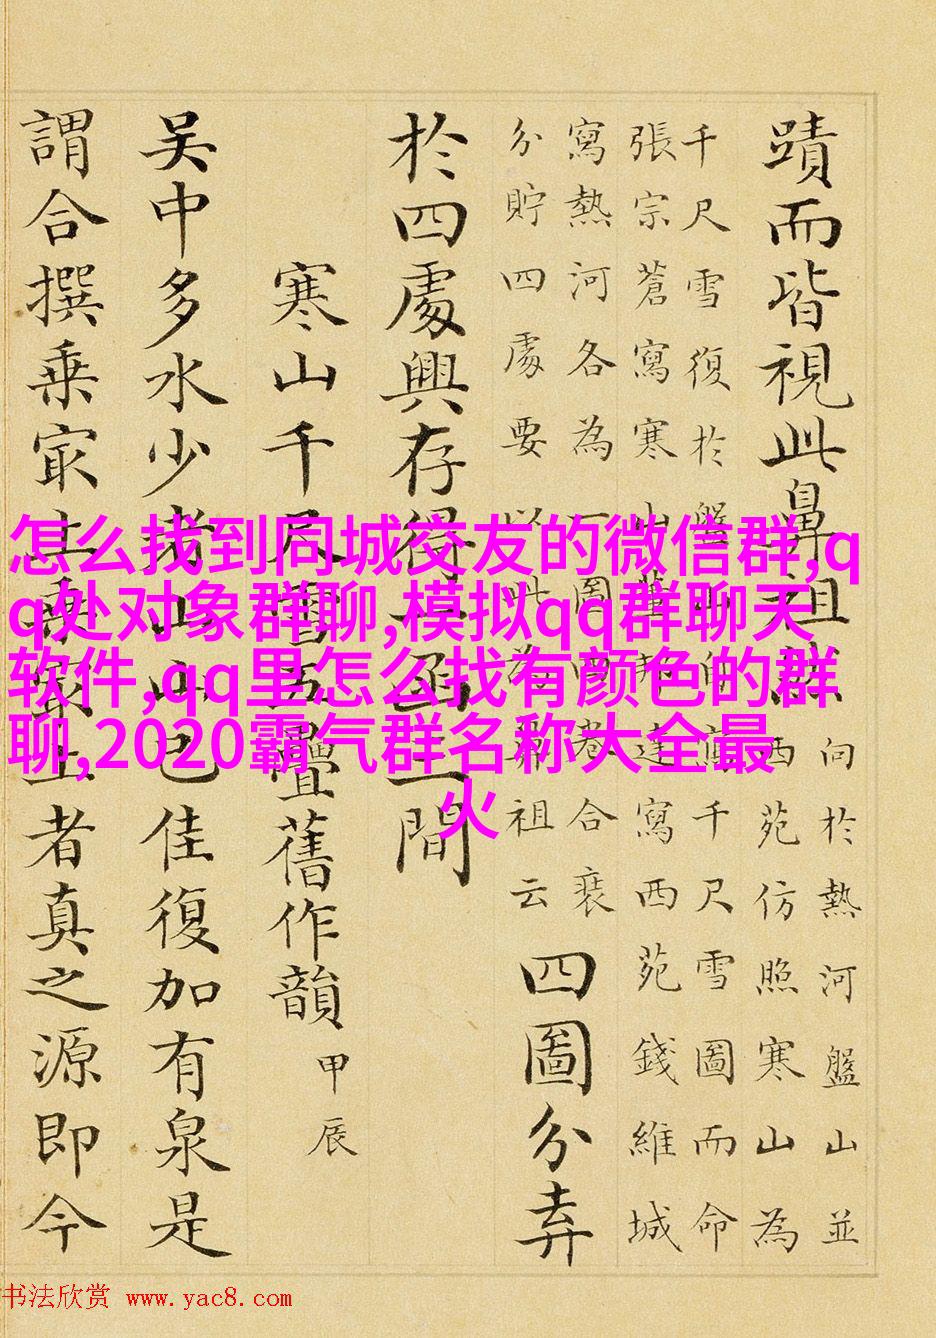 蹟而皆視此鼻祖誌
向於熱河盤山並
西苑仿照寒山為
千尺雪復於盤山
千尺雪圖而命
張宗蒼寫寒山
寫西苑錢維城
寫熱河各為一圖
合裝
分貯四處要以此為鼻祖云
四圖分弆
於四處興存得一函
間
寒山千尺雪五疊舊作韻
甲辰
吳中多水少
山已佳復加有泉是
謂合撰乘宸
者真之源即今
怎么找到同城交友的微信群,q
q处对象群聊,模拟qq群聊天
软件,qq里怎么找有颜色的群
聊,2020霸气群名称大全最
火
书法欣赏 www.yac8.com